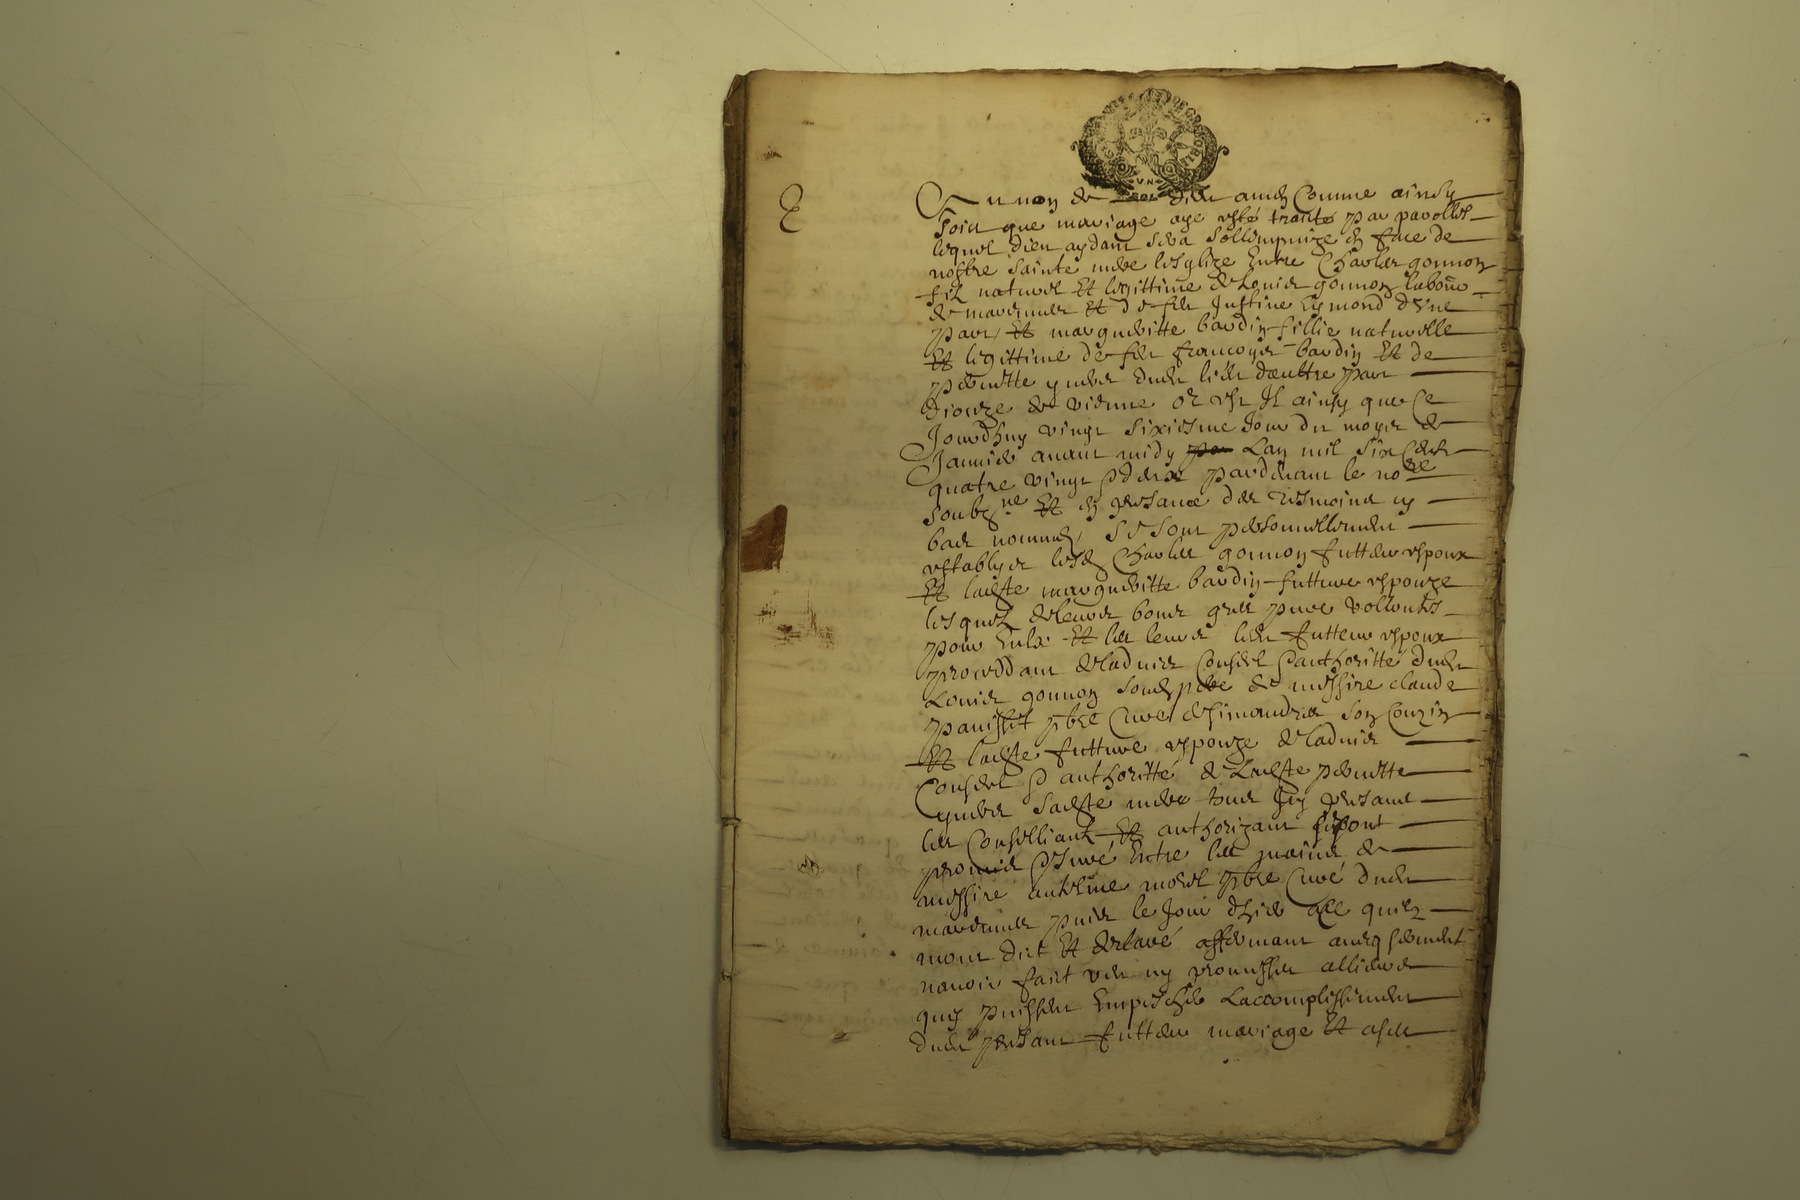 Au nom de Dieu amen Comme ainsy
Soit que mariage aye esté traité par parolles
lequel dieu aydant sera sollempnize en face de
nostre sainte mere lesglize Entre Charles gonnon
filz naturel Et legittime de Louis gonnon labour
de marennes Et de feue Justine Eymond d'une
part, Et margueritte bardin fillie naturelle
Et legittime de feu francoys bardin Et de
pernette dud lieu dauttre part
Dioceze de vienne or est Il ainsy que Ce
Jourdhuy vingt sixiesme Jour du moys de
Janvier avant midy Lan mil six Cent
quatre vingt pardevant le nore
soubzne Et en presance des tesmoins cy
bas nommez, se sont personnellement
establys lesd Charles gonnon futteur espoux
Et ladte marguerite bardin futture espouze
lesquelz de leurs bons grez pure vollontés
pour Eulx Et les leurs led futteur espoux
proceddant de ladvis Conseil authoritté dud
Louis gonnon sond pere de messire claude
pbre Curé de simandres son Couzin
Et ladte futture espouze de ladvis
Conseil authoritté de Ladte pernette
sadte mere tous Icy presant
les Conseilliant Et authorizant
promis Et Juré Entre les mains de
messire anthelme morel pbre Curé dud
marennes puis le Jour dhier
mont dict Et declaré affermant avec serment
navoir fait veu ny promesses allieurs
quy puissent Empescher Laccomplissement
dud presant futteur mariage Et a